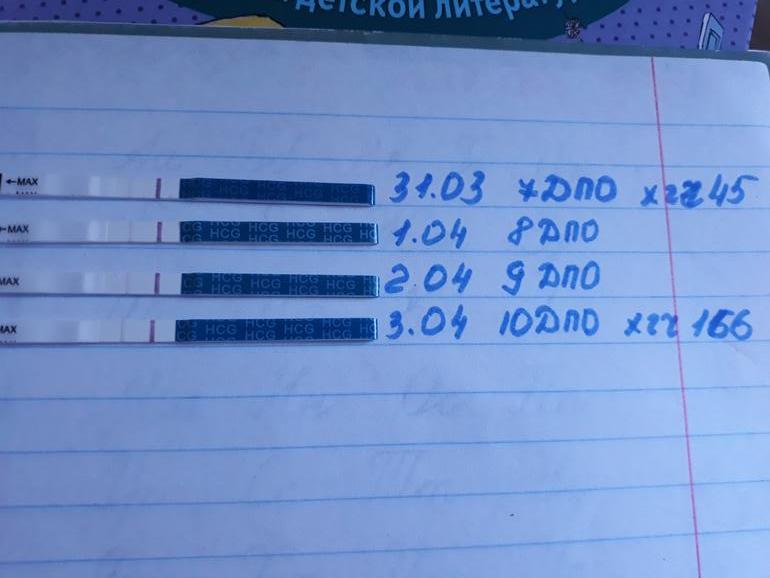 детской литерату
←MAX HCG HCG HCG HCG 31.03 7ДПО хгч 45
-MAX CG HCG HCG HCG HCG 1.04 8 ДПО
MAX CG HCG HCG HCG HCG 2.04 9 ДПО
MAX HCG HCG HCG HCG 3.04 10 ДПО хгч 166